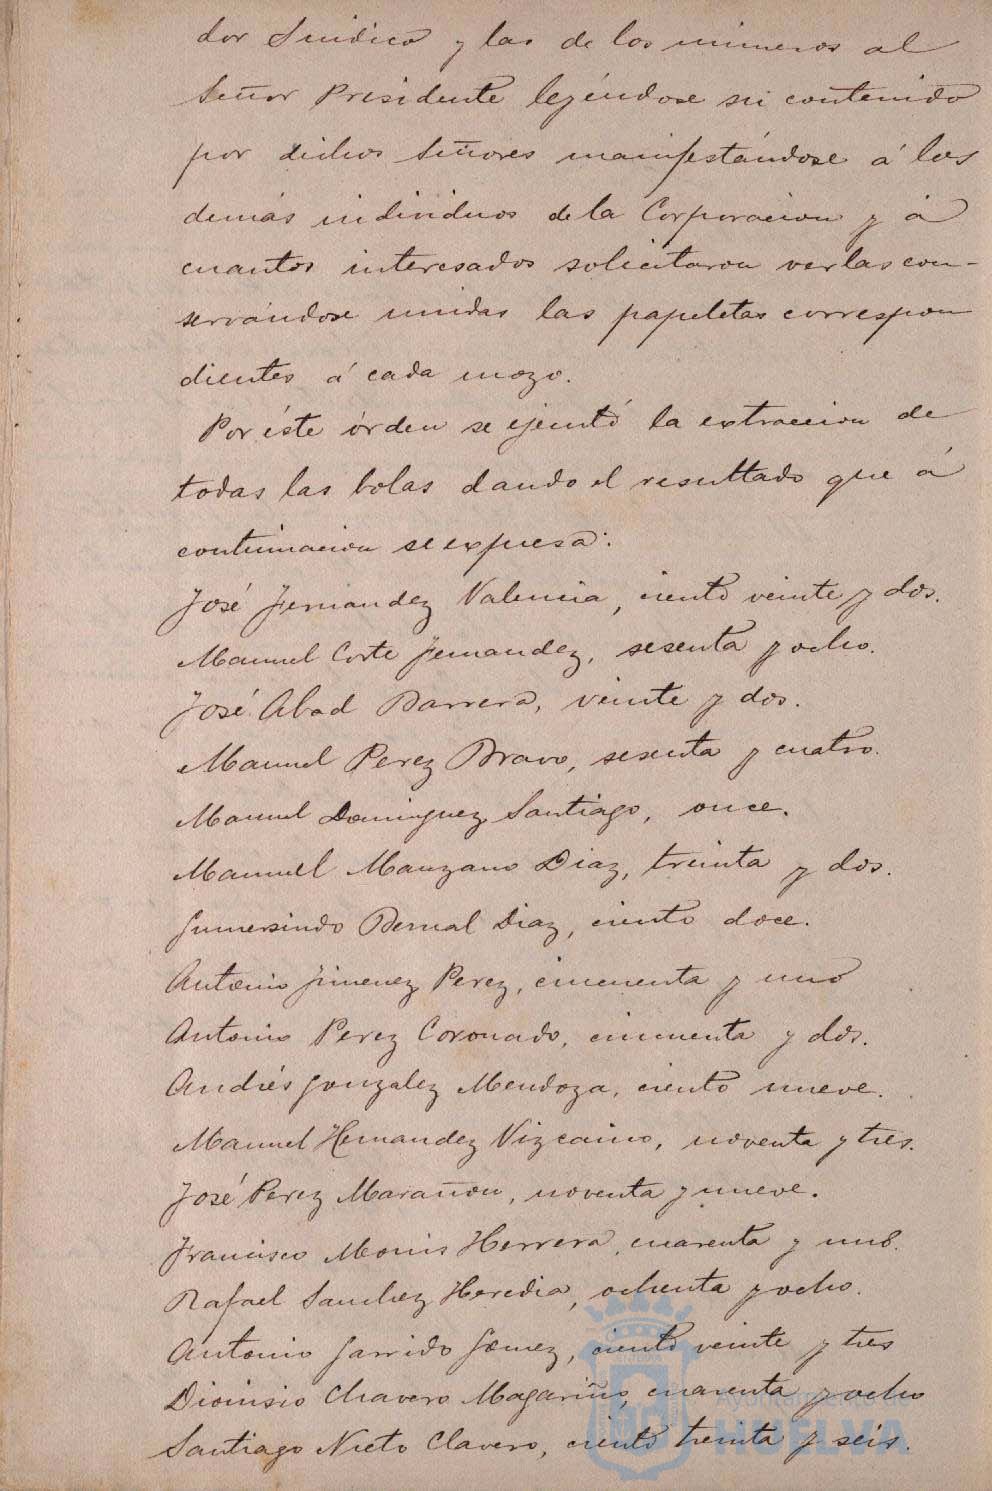 dor Síndico y las de los números al
Señor Presidente leyéndose su contenido
por dichos Señores manifestándose á los
demás individuos de la Corporacion y á
cuantos interesados solicitaron verlas con-
servándose unidas las papeletas correspon
dientes á cada mozo.
Por éste órden se ejecutó la extraccion de
todas las bolas dando el resultado que á
continuacion se expresa:
José Fernandez Valencia, ciento veinte y dos.
Manuel Corte Fernandez, sesenta y ocho.
José Abad Barrera, veinte y dos.
Manuel Perez Bravo, sesenta y cuatro.
Manuel Dominguez Santiago, once.
Manuel Manzano Diaz, treinta y dos.
Gumersindo Bernal Diaz, ciento doce.
Antonio Jimenez Perez, cincuenta y uno
Antonio Perez Coronado, cincuenta y dos.
Andrés Gonzalez Mendoza, ciento nueve.
Manuel Hernandez Vizcaino, noventa y tres.
José Perez Marañon, noventa y nueve.
Francisco Monis Herrera, cuarenta y uno.
Rafael Sanchez Heredia, ochenta y ocho.
Antonio Garrido Gomez, ciento veinte y tres
Dionisio Chavero Magariño, cuarenta y ocho
Santiago Nieto Clavero, ciento treinta y seis.
Ayuntamiento de
HUELVA